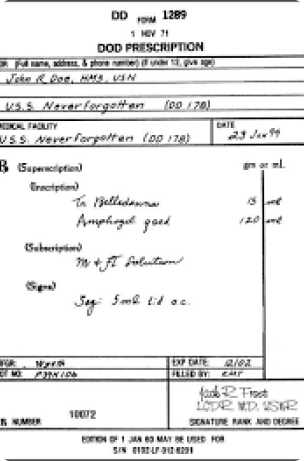 DD FORM 1289
1 NOV 71
DOD PRESCRIPTION
FOR (Full name, address, & phone number) (If under 12, give age)
John R. Doe, HM3, USN
U.S.S. Neverforgotten (DD 178)
MEDICAL FACILITY
U.S.S. Neverforgotten (DD 178)
DATE
23 Jan 99
℞ (Superscription)
gm or ml.
(Inscription)
Tr Belladonna 15 ml
Amphogel qsad 120 ml
(Subscription)
M & Ft Solution
(Signa)
Sig: 5 ml tid a.c.
MFGR: Wyeth
EXP DATE: 12/02
LOT NO: P39K106
FILLED BY: KMT
Jack R. Frost
LCDR MD. USNR
10072
℞ NUMBER
SIGNATURE RANK AND DEGREE
EDITION OF 1 JAN 60 MAY BE USED FOR
S/N 0102-LF-012-6201